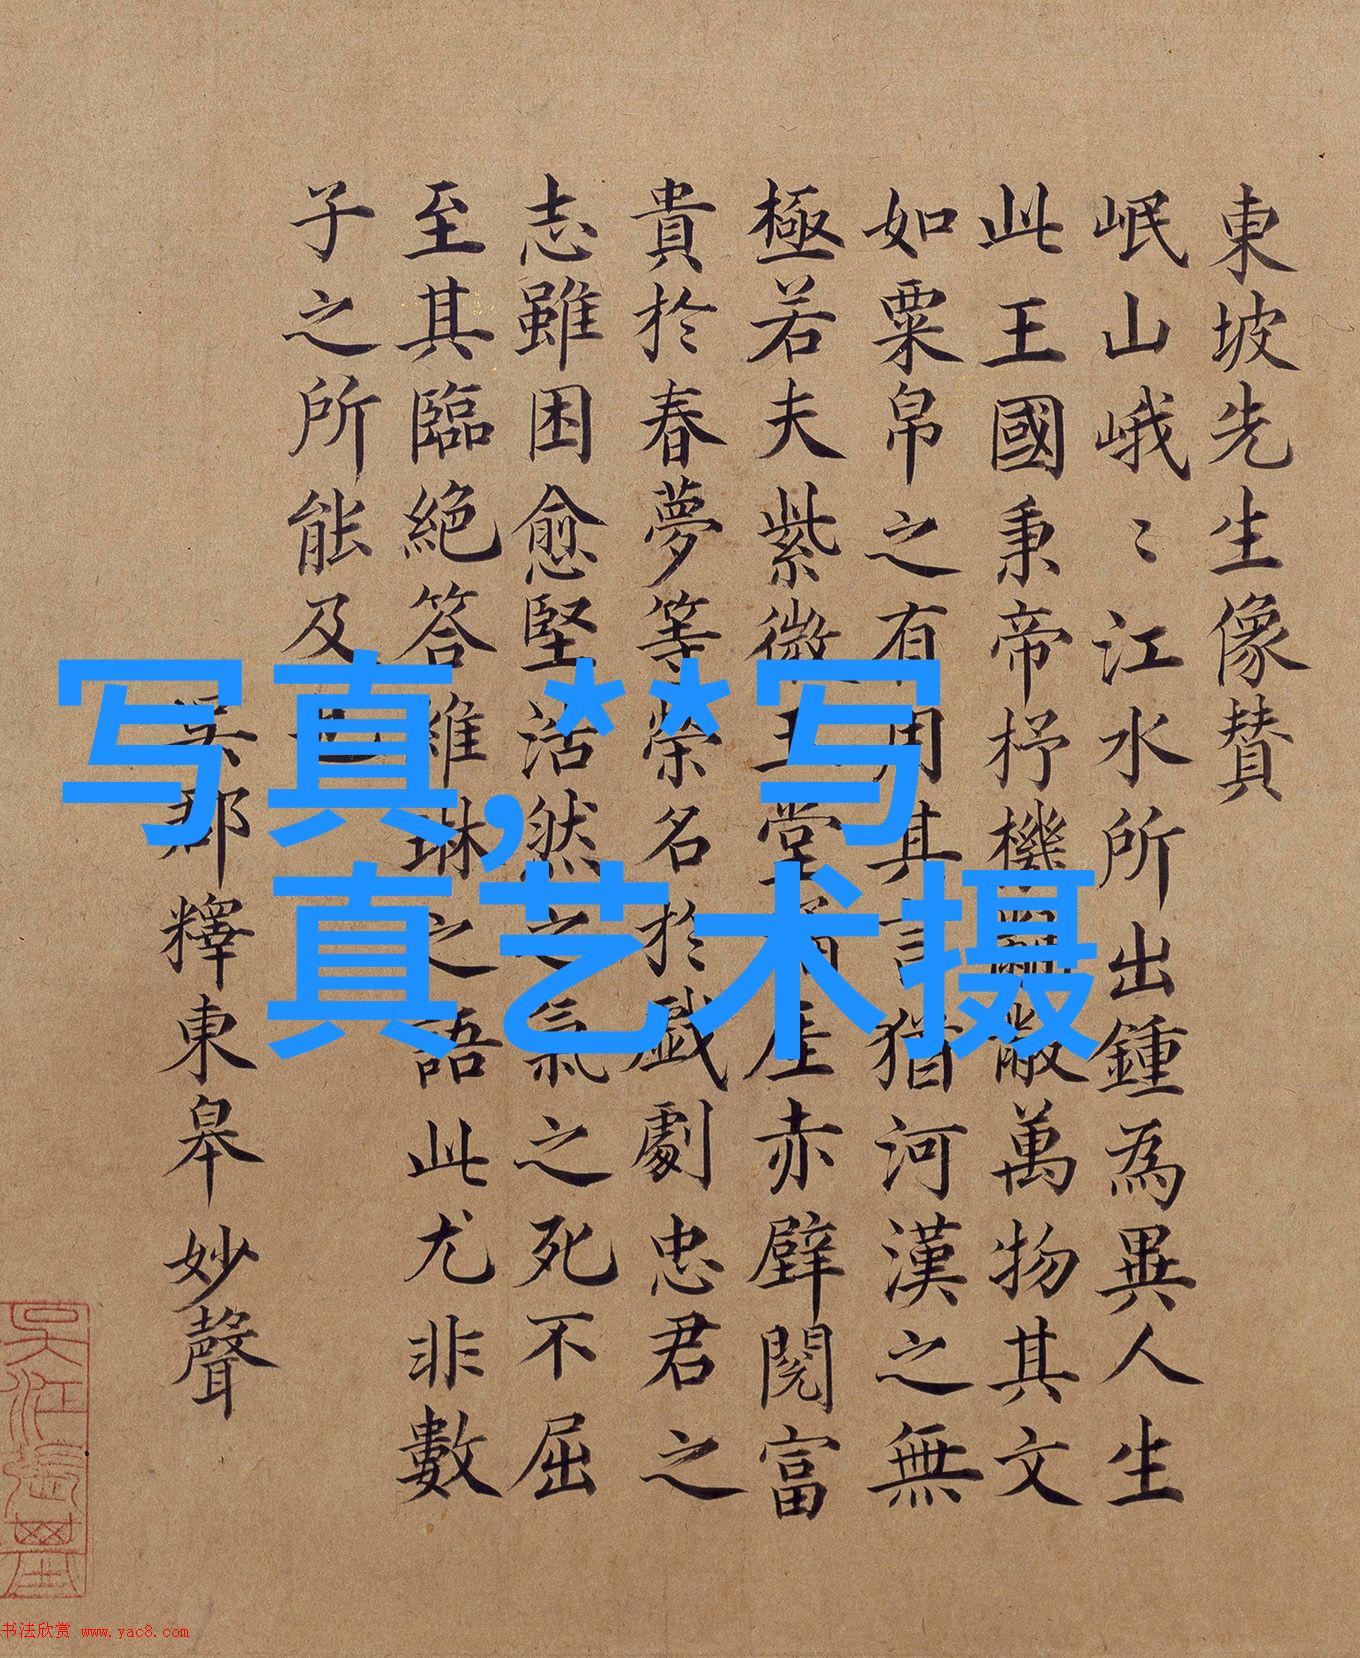 東坡先生像賛
岷山峨〻江水所出鍾為異人生
此王國秉帝杼機黼黻萬物其文
如粟帛之有用其言猶河漢之無
極若夫紫微玉堂瓊崖赤壁閱富
貴於春夢等榮名於戲劇忠君之
志雖困愈堅浩然之氣之死不屈
至其臨絕答維琳之語此尤非數
子之所能及也
吳郡釋東皋妙聲
写真,**写
真艺术摄
书法欣赏 www.yac8.com